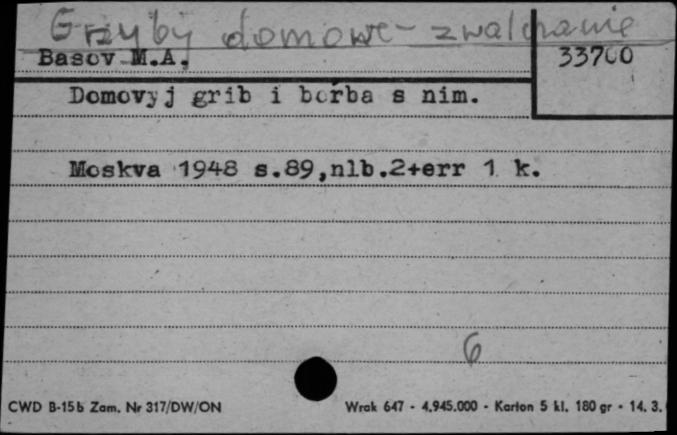 Grzyby domowe - zwalczanie
Basov M.A.
33700
Domovyj grib i borba s nim.
Moskva 1948 s.89,nlb.2+err 1 k.
6
CWD B-15b Zam. Nr 317/DW/ON
Wrak 647 - 4.945.000 - Karton 5 kl. 180 gr - 14. 3.